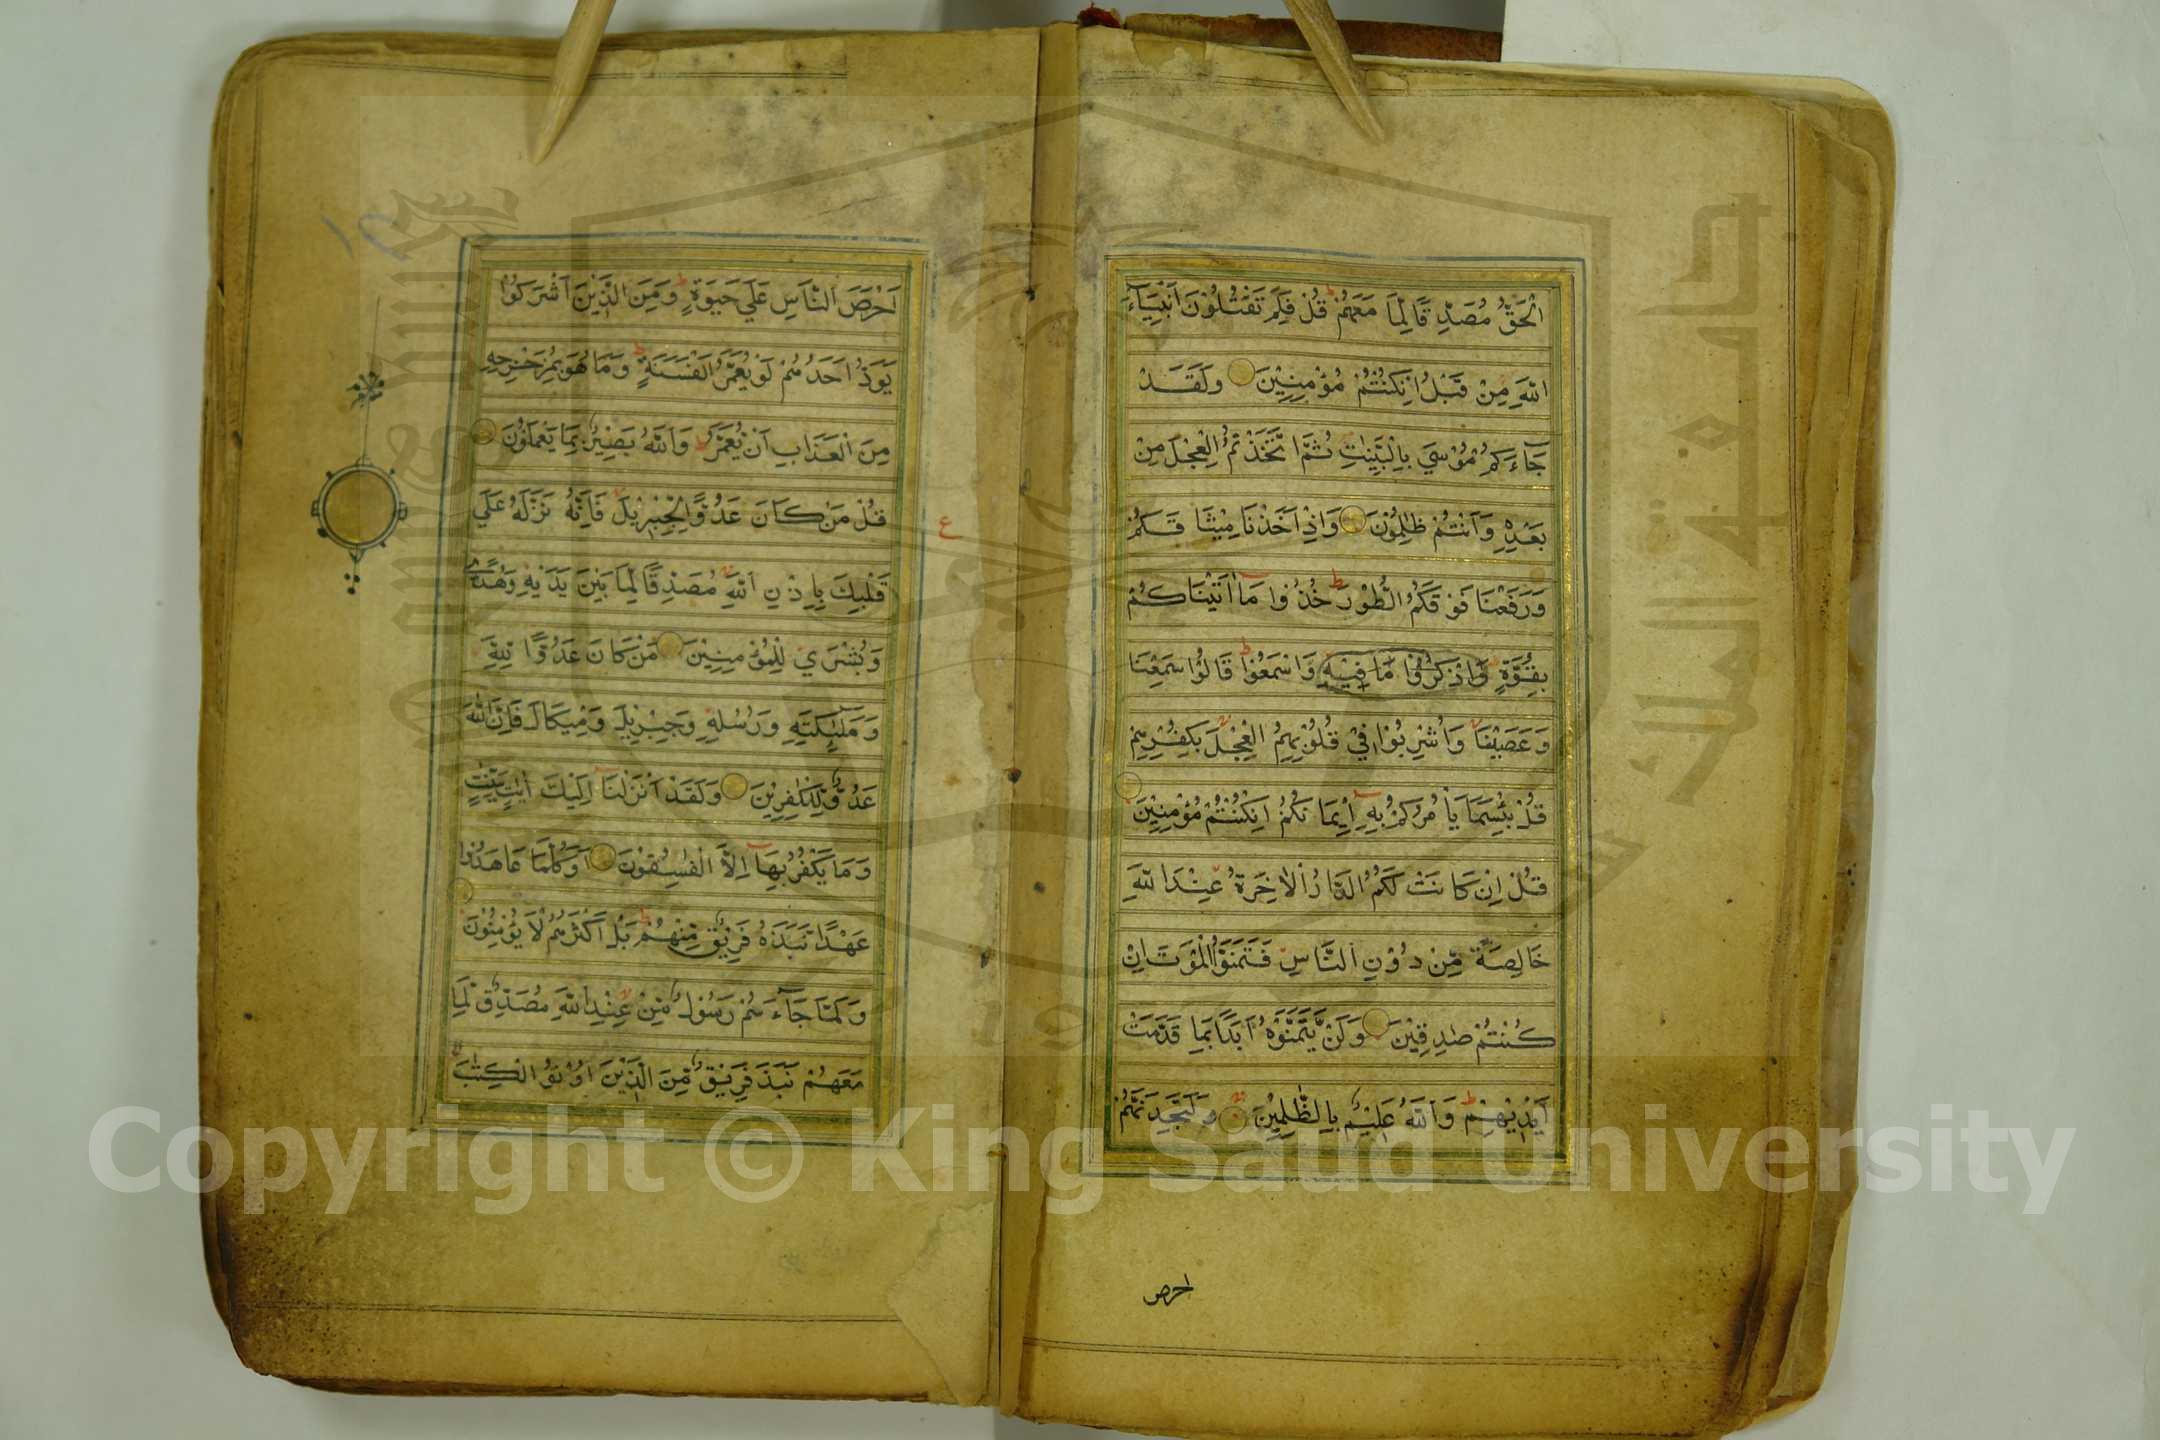 الْحَقُّ مُصَدِّقًا لِمَا مَعَهُمْ ط قُلْ فَلِمَ تَقْتُلُوْنَ اَنْبِيَآءَ
اللّٰهِ مِنْ قَبْلُ اِنْ كُنْتُمْ مُؤْمِنِيْنَ وَلَقَدْ
جَآءَكُمْ مُوْسٰي بِالْبَيِّنٰتِ ثُمَّ اتَّخَذْتُمُ الْعِجْلَ مِنْ
بَعْدِهٖ وَاَنْتُمْ ظٰلِمُوْنَ وَاِذْ اَخَذْنَا مِيْثَاقَكُمْ
وَرَفَعْنَا فَوْقَكُمُ الطُّوْرَ ط خُذُوْا مَا اٰتَيْنَاكُمْ
بِقُوَّةٍ وَاذْكُرُوْا مَا فِيْهِ وَاسْمَعُوْا ط قَالُوْا سَمِعْنَا
وَعَصَيْنَا وَاُشْرِبُوْا فِيْ قُلُوْبِهِمُ الْعِجْلَ بِكُفْرِهِمْ
قُلْ بِئْسَمَا يَاْمُرُكُمْ بِهٖ اِيْمَانُكُمْ اِنْ كُنْتُمْ مُؤْمِنِيْنَ
قُلْ اِنْ كَانَتْ لَكُمُ الدَّارُ الْاٰخِرَةُ عِنْدَ اللّٰهِ
خَالِصَةً مِّنْ دُوْنِ النَّاسِ فَتَمَنَّوُا الْمَوْتَ اِنْ
كُنْتُمْ صٰدِقِيْنَ وَلَنْ يَّتَمَنَّوْهُ اَبَدًا بِمَا قَدَّمَتْ
اَيْدِيْهِمْ ط وَاللّٰهُ عَلِيْمٌ بِالظّٰلِمِيْنَ وَلَتَجِدَنَّهُمْ
احرص
اَحْرَصَ النَّاسِ عَلٰي حَيٰوةٍ ط وَمِنَ الَّذِيْنَ اَشْرَكُوْا
يَوَدُّ اَحَدُهُمْ لَوْ يُعَمَّرُ اَلْفَ سَنَةٍ ط وَمَا هُوَ بِمُزَحْزِحِهٖ
مِنَ الْعَذَابِ اَنْ يُعَمَّرَ ط وَاللّٰهُ بَصِيْرٌ بِمَا يَعْمَلُوْنَ
قُلْ مَنْ كَانَ عَدُوًّا لِجِبْرِيْلَ فَاِنَّهُ نَزَّلَهُ عَلٰي
ع
قَلْبِكَ بِاِذْنِ اللّٰهِ مُصَدِّقًا لِمَا بَيْنَ يَدَيْهِ وَهُدًى
وَبُشْرٰي لِلْمُؤْمِنِيْنَ مَنْ كَانَ عَدُوًّا لِلّٰهِ
وَمَلٰٓئِكَتِهٖ وَرُسُلِهٖ وَجِبْرِيْلَ وَمِيْكَالَ فَاِنَّ اللّٰهَ
عَدُوٌّ لِلْكٰفِرِيْنَ وَلَقَدْ اَنْزَلْنَا اِلَيْكَ اٰيٰتٍ بَيِّنٰتٍ
وَمَا يَكْفُرُ بِهَا اِلَّا الْفٰسِقُوْنَ اَوَكُلَّمَا عَاهَدُوْا
عَهْدًا نَبَذَهُ فَرِيْقٌ مِّنْهُمْ ط بَلْ اَكْثَرُهُمْ لَا يُؤْمِنُوْنَ
وَلَمَّا جَآءَهُمْ رَسُوْلٌ مِّنْ عِنْدِ اللّٰهِ مُصَدِّقٌ لِمَا
مَعَهُمْ نَبَذَ فَرِيْقٌ مِّنَ الَّذِيْنَ اُوْتُوا الْكِتٰبَ
Copyright © King Saud University